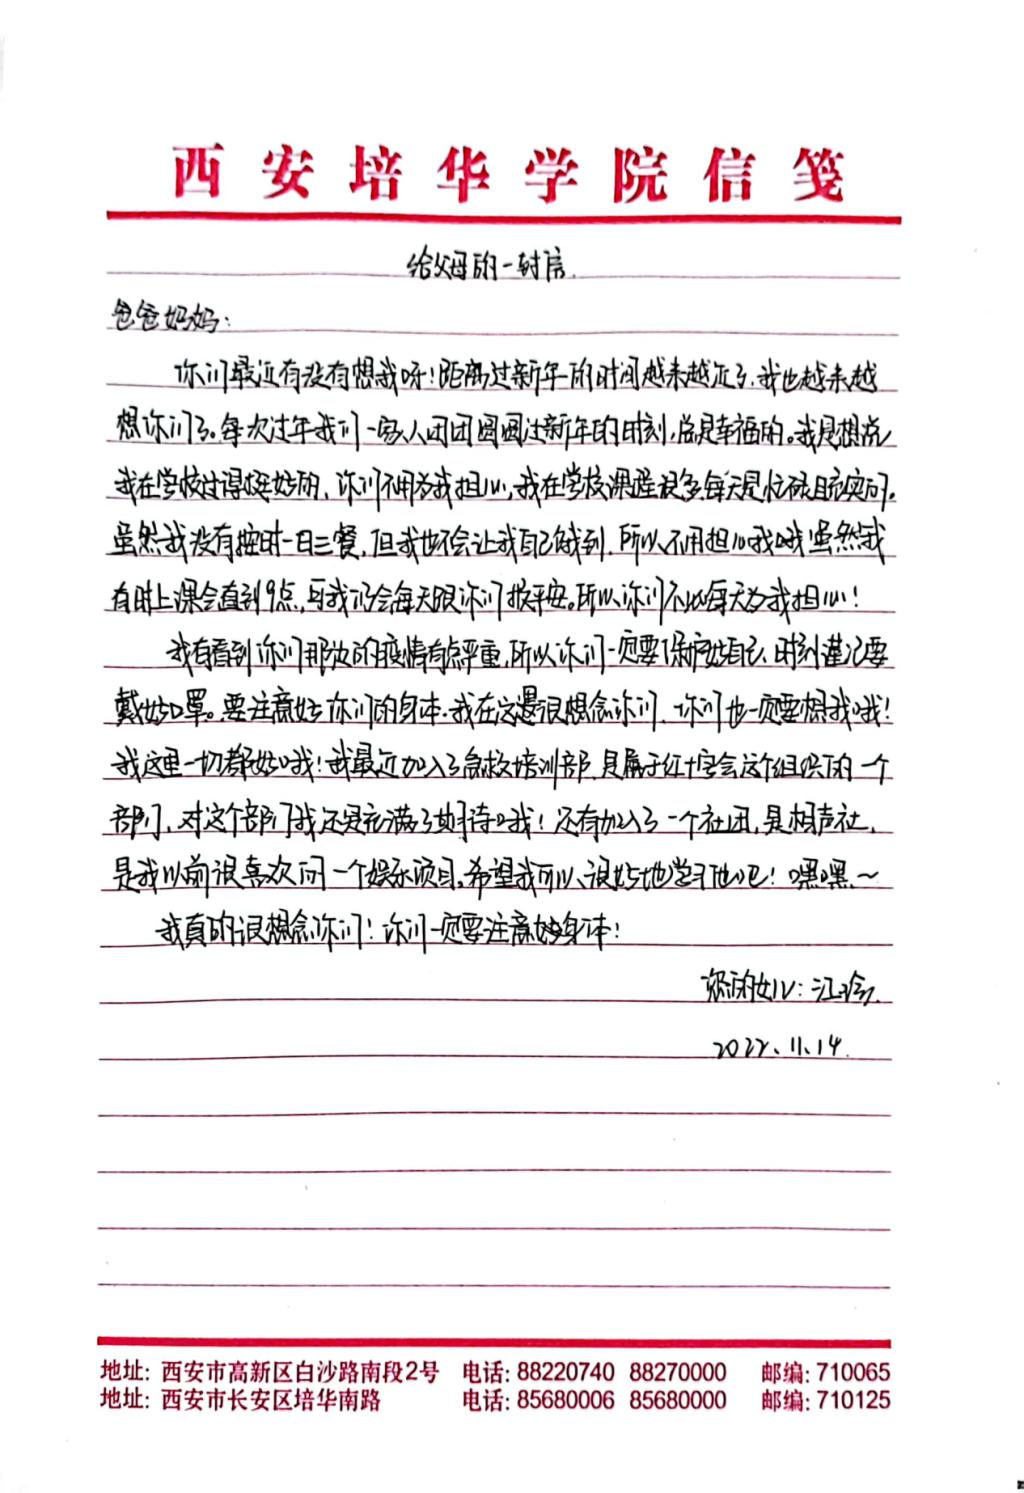 西安培华学院信笺
给父母的一封信.
爸爸妈妈：
你们最近有没有想我呀！距离过新年的时间越来越近了，我也越来越
想你们了。每次过年我们一家人团团圆圆过新年的时刻，总是幸福的。我是想说，
我在学校过得挺好的，你们不用为我担心，我在学校课程很多，每天是忙碌且充实的。
虽然我没有按时一日三餐，但我也不会让我自己饿到，所以不用担心我哦！虽然我
有时上课会直到9点，可我仍会每天跟你们报平安。所以你们不必每天为我担心！
我有看到你们那边的疫情有点严重，所以你们一定要保护好自己，时刻谨记要
戴好口罩。要注意好你们的身体.我在这边很想念你们，你们也一定要想我哦！
我这里一切都好哦！我最近加入了急救培训部，是属于红十字会这个组织下的一个
部门，对这个部门我还是充满了期待哦！还有加入了一个社团，是相声社，
是我以前很喜欢的一个娱乐项目，希望我可以很好地学习他吧！嘿嘿～
我真的很想念你们！你们一定要注意好身体！
您的女儿：江玲.
2022.11.14.
地址: 西安市高新区白沙路南段2号 电话: 88220740 88270000 邮编: 710065
地址: 西安市长安区培华南路 电话: 85680006 85680000 邮编: 710125